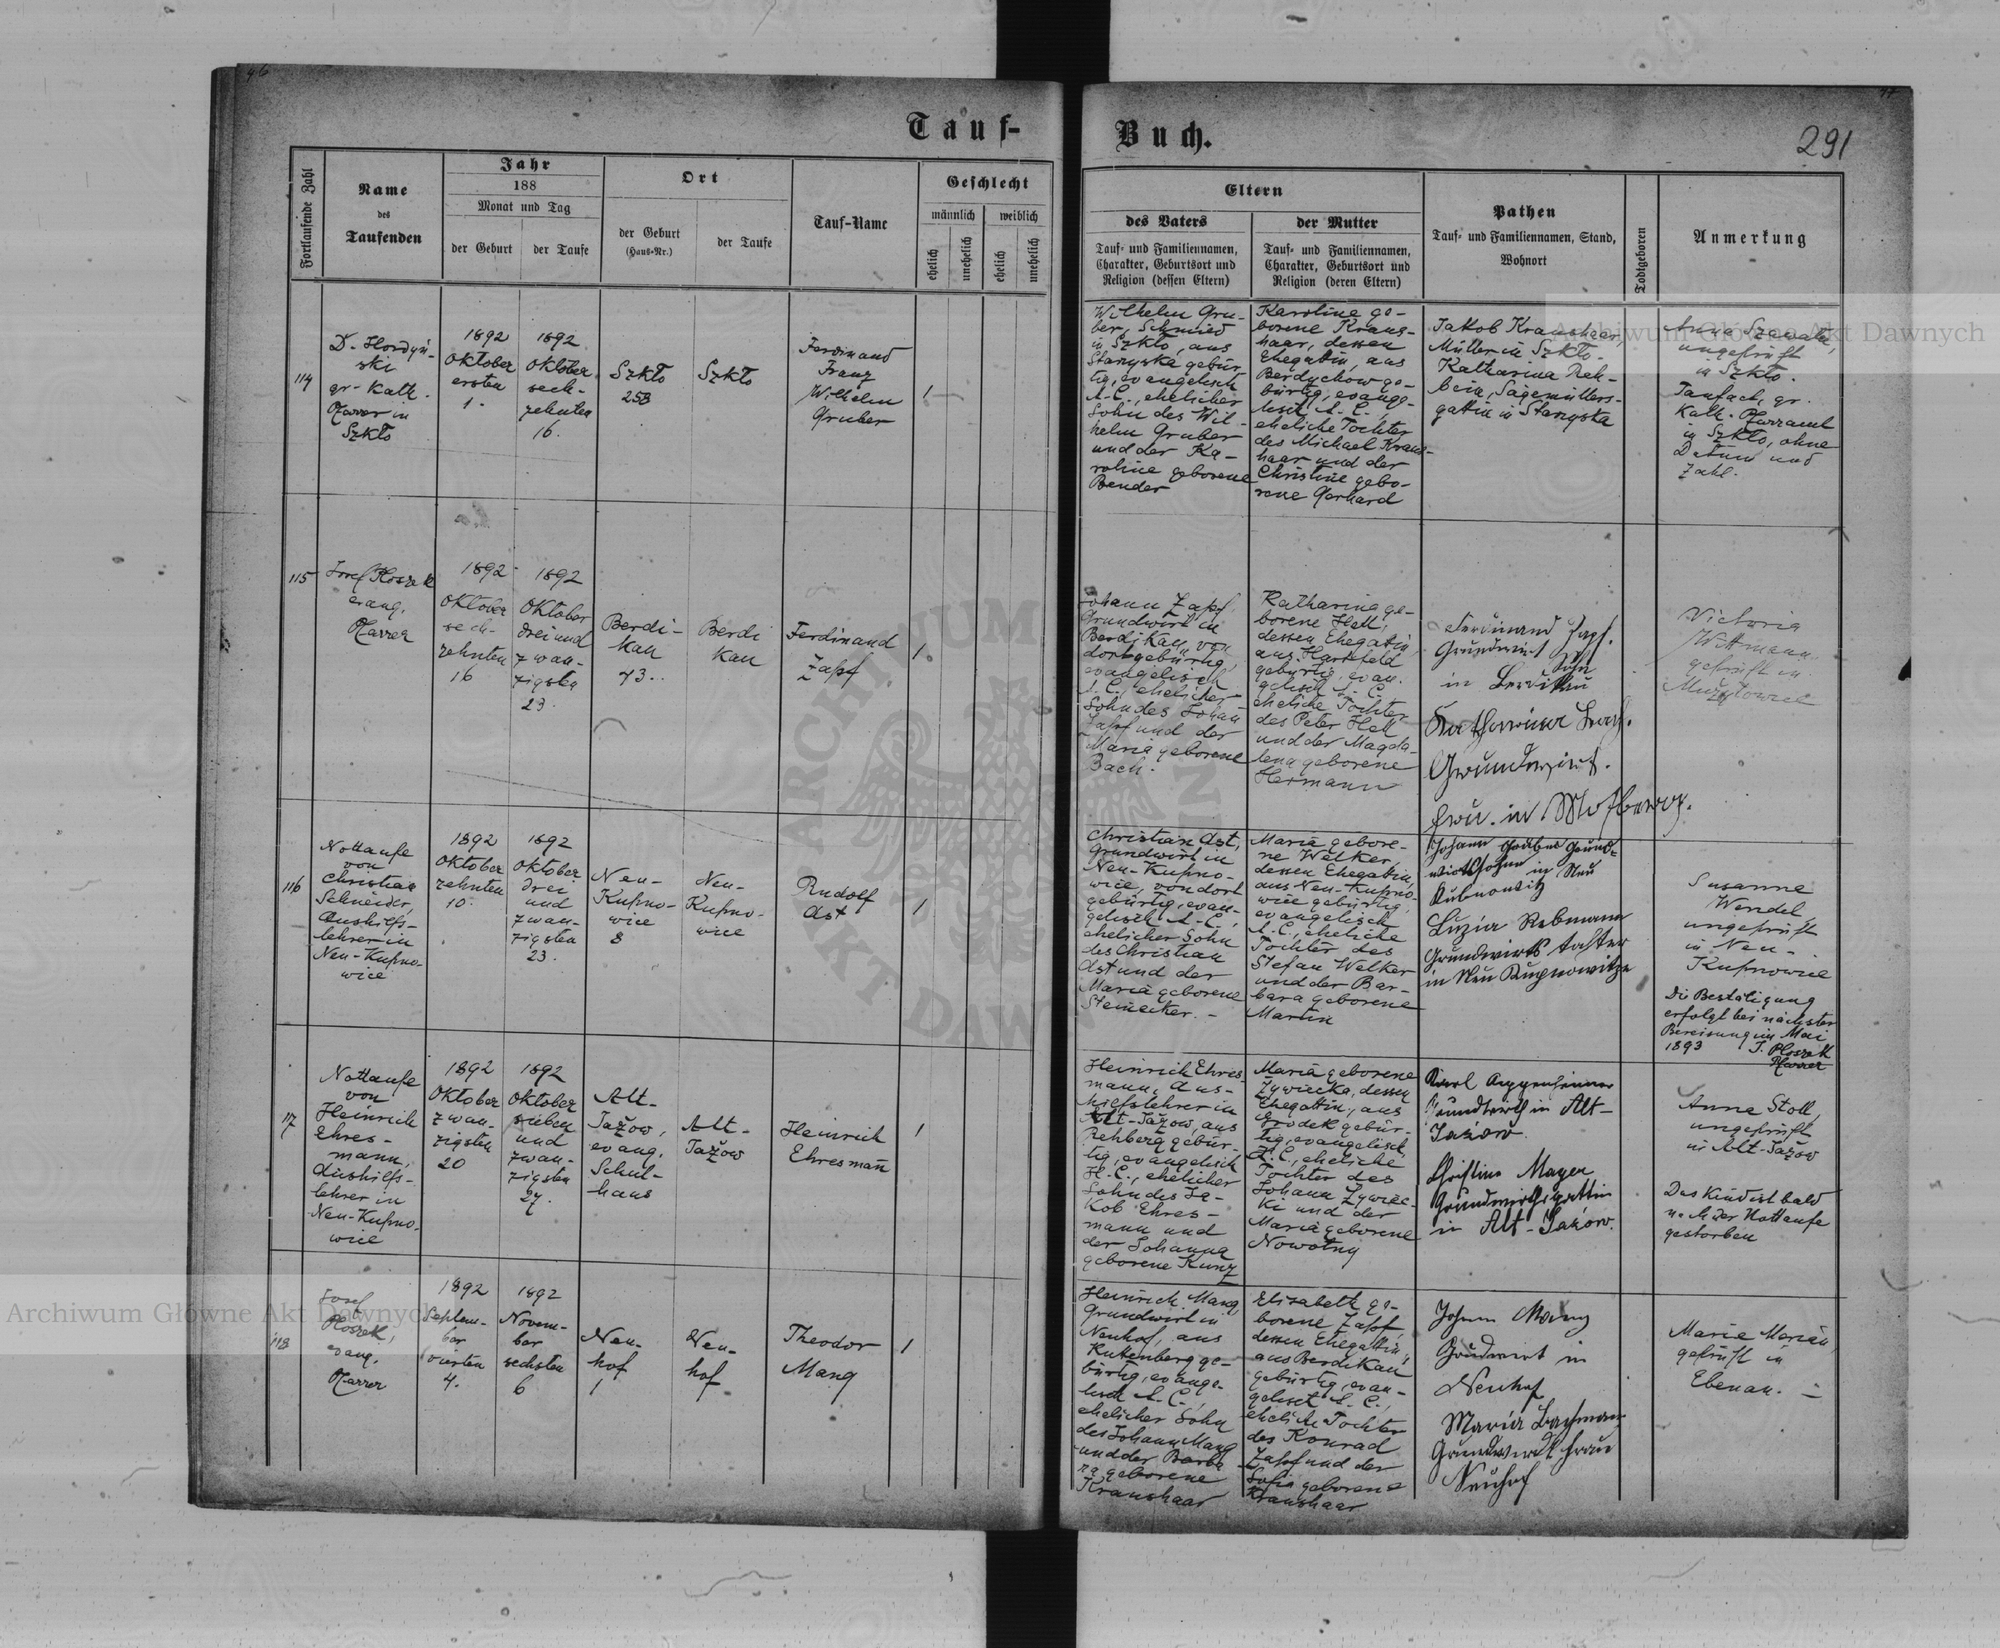 46
47
Tauf-
Buch.
291
Fortlaufende Zahl
Name
des
Taufenden
Jahr
188
Monat und Tag
der Geburt
der Taufe
Ort
der Geburt
(Haus-Nr.)
der Taufe
Tauf-Name
Geschlecht
männlich
weiblich
ehelich
unehelich
ehelich
unehelich
Eltern
des Vaters
Tauf- und Familiennamen,
Charakter, Geburtsort und
Religion (dessen Eltern)
der Mutter
Tauf- und Familiennamen,
Charakter, Geburtsort und
Religion (deren Eltern)
Pathen
Tauf- und Familiennamen, Stand,
Wohnort
Todtgeboren
Anmerkung
114
D. Hordyń-
ski
gr. Kath.
Pfarrer in
Szkło
1892
Oktober
ersten
1.
1892
Oktober
sech-
zehnten
16.
Szkło
253
Szkło
Ferdinand
Franz
Wilhelm
Gruber
1
Wilhelm Gru-
ber, Schmied
in Szkło, aus
Starzyska gebür-
tig, evangelisch
A.C., ehelicher
Sohn des Wil-
helm Gruber
und der Ka-
roline geborene
Bender
Karoline ge-
borene Kraus-
haar, dessen
Ehegattin, aus
Berdychow ge-
bürtig, evange-
lisch A.C.,
eheliche Tochter
des Michael Kraus-
haar und der
Christine gebo-
rene Gerhard
Jakob Kraushaar,
Müller in Szkło.
Katharina Reh-
bein, Sägemüllers-
gattin in Starzyska
Anna
ungeprüft
in Szkło.
Taufach. gr.
Kath. Pfarramt
in Szkło, ohne
Datum und
Zahl.
115
Josef Ploszek
evang.
Pfarrer
1892
Oktober
sech-
zehnten
16
1892
Oktober
drei und
zwan-
zigsten
23.
Berdi-
kau
43.
Berdi
kau
Ferdinand
Zapf
1
Johann Zapf,
Grundwirt in
Berdikau, von
dort gebürtig,
evangelisch
A.C., ehelicher
Sohn des Johan
Zapf und der
Maria geborene
Bach.
Katharina ge-
borene Hell,
dessen Ehegattin,
aus Hartfeld
gebürtig, evan-
gelisch A.C.
eheliche Tochter
des Peter Hell
und der Magda-
lena geborene
Hermann
Ferdinand Zapf.
Grundwirt Sohn
in Berdikau
Katharina
Grundwirt.
frau. in
Victoria
Wittmann
geprüft in
Mużyłowice
116
Nottaufe
von
Christian
Schneider,
Aushilfs-
lehrer in
Neu-Kupno-
wice
1892
Oktober
zehnten
10.
1892
Oktober
drei
und
zwan-
zigsten
23.
Neu-
Kupno-
wice
8
Neu-
Kupno-
wice
Rudolf
Ast
1
Christian Ast,
Grundwirt in
Neu-Kupno-
wice, von dort
gebürtig, evan-
gelisch A.C.,
ehelicher Sohn
des Christian
Ast und der
Maria geborene
Steinecker.
Maria gebore-
ne Welker,
dessen Ehegattin,
aus Neu-Kupno-
wice gebürtig,
evangelisch
A.C., eheliche
Tochter des
Stefan Welker
und der Bar-
bara geborene
Martin
Johann Gräber Grund-
wirtssohn in Neu
Kubnowitz
Luzia Rebmann
Grundwirts tochter
in Neu Kupnowitze
Susanne
Wendel,
ungeprüft
in Neu-
Kupnowice
Die Bestätigung
erfolgt bei nächster
Bereisung im Mai
1893 J. Ploszek
Pfarrer
117
Nottaufe
von
Heinrich
Ehres-
mann,
Aushilfs-
lehrer in
Neu-Kupno-
wice
1892
Oktober
zwan-
zigsten
20
1892
Oktober
sieben
und
zwan-
zigsten
27.
Alt-
Jażow,
evang.
Schul-
haus
Alt-
Jażow
Heinrich
Ehresman̄
1
Heinrich Ehres-
mann, Aus-
hilfslehrer in
Alt-Jażow, aus
Rehberg gebür-
tig, evangelisch
H.C., ehelicher
Sohn des Ja-
kob Ehres-
mann und
der Johanna
geborene Kunz
Maria geborene
Żywiecka, dessen
Ehegattin, aus
Grodek gebür-
tig, evangelisch,
A.C., eheliche
Tochter des
Johann Żywiec-
ki und der
Maria geborene
Nowotny
Karl
Grundwirth in Alt-
Jazow.
Christine Mayer
Grundwirthsgattin
in Alt-Jazow.
Anna Stoll,
ungeprüft
in Alt-Jażow
Das Kind ist bald
nach der Nottaufe
gestorben
118
Josef
Ploszek,
evang.
Pfarrer
1892
Septem-
ber
vierten
4.
1892
Novem-
ber
sechsten
6
Neu-
hof
1
Neu-
hof
Theodor
Mang
1
Heinrich Mang
Grundwirt in
Neuhof, aus
Ruttenberg ge-
bürtig, evange-
lisch A.C.,
ehelicher Sohn
des Johann Mang
und der Barba-
ra geborene
Kraushaar
Elisabeth ge-
borene Zapf
dessen Ehegattin,
aus Berdikau
gebürtig, evan-
gelisch A.C.,
eheliche Tochter
des Konrad
Zapf und der
Sofia geborene
Kraushaar
Johann Mang
Grundwirt in
Neuhof
Maria Bachmann
Grundwirt frau
Neuhof
Maria Marian,
geprüft in
Ebenau.
Archiwum Główne Akt Dawnych
Archiwum Główne Akt Dawnych